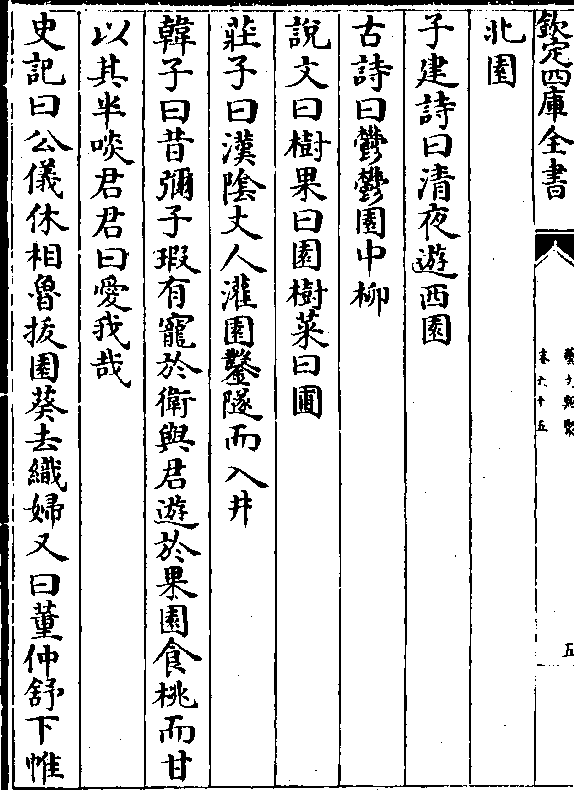 欽定四庫全書
藝文類聚
卷六十五
五
北園
子建詩曰清夜遊西園
古詩曰鬱鬱園中柳
說文曰樹果曰園樹菜曰圃
莊子曰漢陰丈人灌園鑿隧而入井
韓子曰昔彌子瑕有寵於衛與君遊於果園食桃而甘
以其半啖君君曰愛我哉
史記曰公儀休相魯拔園葵去織婦又曰董仲舒下帷